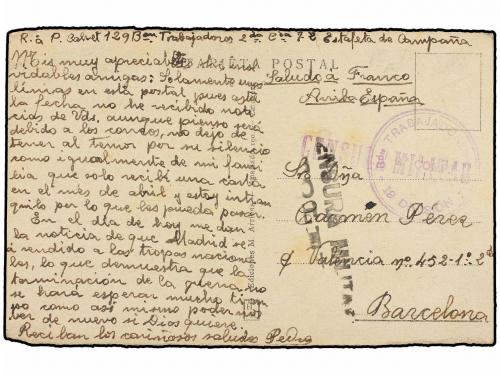 R. a P. Calvet 129 Bon Trabajadores 2da Cia 7.2 Estafeta de Campaña
TARJETA POSTAL
Mis muy apreciables e inol
vidables amigas: Solamente unas
líneas en esta postal, pues asta
la fecha no he recibido noti
cias de Vds, aunque pienso será
debido a los correos, no dejo de
tener al temor por su silencio
como igualmente de mi fami
lia que solo recibi una carta
en el més de abril y estoy intran
quilo por lo que les pueda pasar.
En el dia de hoy me dan
la noticia de que Madrid se
á rendido a las tropas naciona
les, lo que demuestra que la
terminación de la guerra no
se hará esperar mucho tiem
po como asi mismo podernos
ver de nuevo si Dios quiere.
Reciban los cariñosos saludos Pedro
Saludo á Franco
Arriba España
CENSURA MILITAR
CENSURA MILITAR
TRABAJADO
Sra Dña
Carmen Pérez
c/ Valencia nº 452-1º 2ª
Barcelona